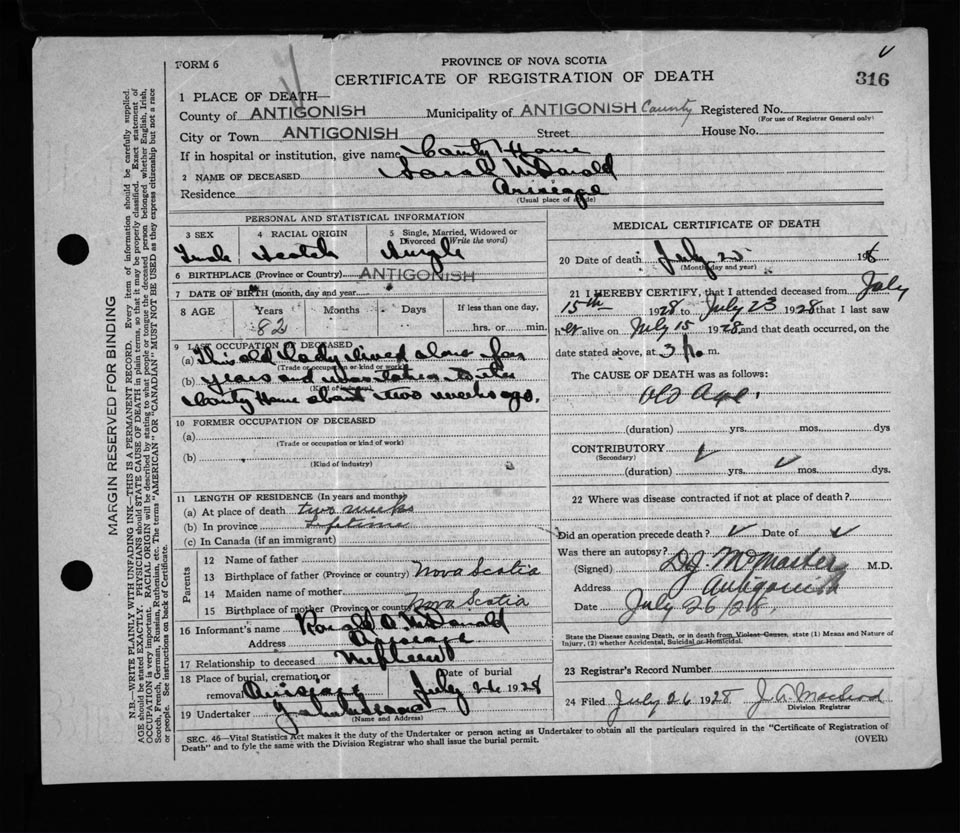 FORM 6
PROVINCE OF NOVA SCOTIA
CERTIFICATE OF REGISTRATION OF DEATH
316
1 PLACE OF DEATH—
County of ANTIGONISH Municipality of ANTIGONISH County Registered No.
(For use of Registrar General only)
City or Town ANTIGONISH Street House No.
If in hospital or institution, give name County Home
2 NAME OF DECEASED Sarah McDonald
Residence Arisaig
(Usual place of abode)
PERSONAL AND STATISTICAL INFORMATION
3 SEX
4 RACIAL ORIGIN
5 Single, Married, Widowed or Divorced (Write the word)
Female Scotch Single
6 BIRTHPLACE (Province or Country) ANTIGONISH
7 DATE OF BIRTH (month, day and year)
8 AGE Years Months Days If less than one day,
82 hrs. or min.
9 LAST OCCUPATION OF DECEASED
(a) This old lady lived alone for
(Trade or occupation or kind of work)
(b) years and was taken to the
(Kind of industry)
County Home about two weeks ago.
10 FORMER OCCUPATION OF DECEASED
(a)
(Trade or occupation or kind of work)
(b)
(Kind of industry)
11 LENGTH OF RESIDENCE (In years and months)
(a) At place of death two weeks
(b) In province Lifetime
(c) In Canada (if an immigrant)
Parents
12 Name of father
13 Birthplace of father (Province or country) Nova Scotia
14 Maiden name of mother
15 Birthplace of mother (Province or country) Nova Scotia
16 Informant's name Ronald D. McDonald
Address Arisaig
17 Relationship to deceased Nephew
18 Place of burial, cremation or removal Arisaig
Date of burial July 26 1928
19 Undertaker
(Name and Address)
MEDICAL CERTIFICATE OF DEATH
20 Date of death July 25 192
(Month, day and year)
21 I HEREBY CERTIFY, that I attended deceased from July
15th 1928 to July 23 1928 that I last saw
her alive on July 15 1928, and that death occurred, on the
date stated above, at 3 m.
The CAUSE OF DEATH was as follows:
Old Age.
(duration) yrs. mos. dys
CONTRIBUTORY
(Secondary)
(duration) yrs. mos. dys.
22 Where was disease contracted if not at place of death?
Did an operation precede death? Date of
Was there an autopsy?
(Signed) D.J. McMaster M.D.
Address Antigonish
Date July 26/28.
State the Disease causing Death, or in death from Violent Causes, state (1) Means and Nature of
Injury, (2) whether Accidental, Suicidal or Homicidal.
23 Registrar's Record Number
24 Filed July 26 1928 J. A. Macleod
Division Registrar
SEC. 46—Vital Statistics Act makes it the duty of the Undertaker or person acting as Undertaker to obtain all the particulars required in the "Certificate of Registration of
Death" and to fyle the same with the Division Registrar who shall issue the burial permit.
(OVER)
MARGIN RESERVED FOR BINDING
N.B.—WRITE PLAINLY WITH UNFADING INK—THIS IS A PERMANENT RECORD. Every item of information should be carefully supplied.
AGE should be stated EXACTLY. PHYSICIANS should STATE CAUSE OF DEATH in plain terms, so that it may be properly classified. Exact statement of
OCCUPATION is very important. RACIAL ORIGIN will be described by stating to what people or tongue the deceased person belonged whether English, Irish,
Scotch, French, German, Russian, Ruthenian, etc. The terms "AMERICAN" or "CANADIAN" MUST NOT BE USED as they express citizenship but not a race
or people. See instructions on back of Certificate.